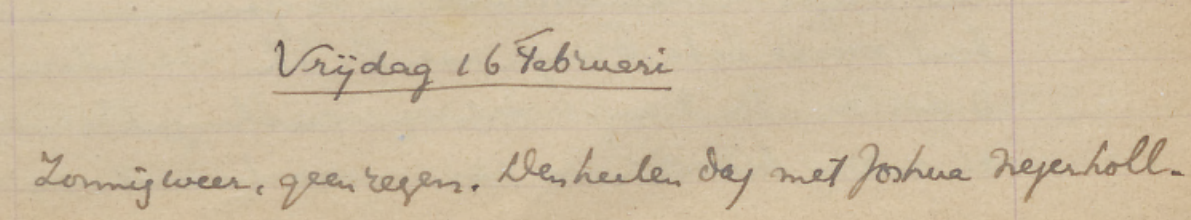 Vrijdag 16 Februari
Zonnig weer, geen regen. Den heelen dag met Joshua Negerholl-